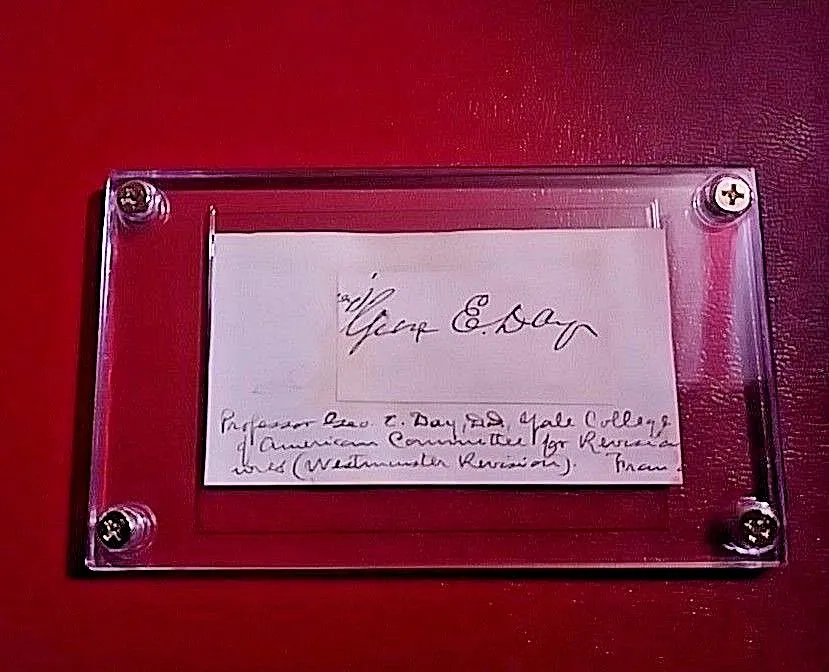 Geo. E. Day
Professor Geo. E. Day, D.D., Yale College
of American Committee for Revision
(Westminster Revision). Fran